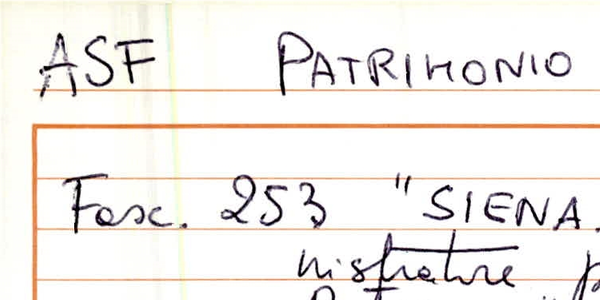 ASF PATRIMONIO
Fasc. 253 "SIENA.
nistrature